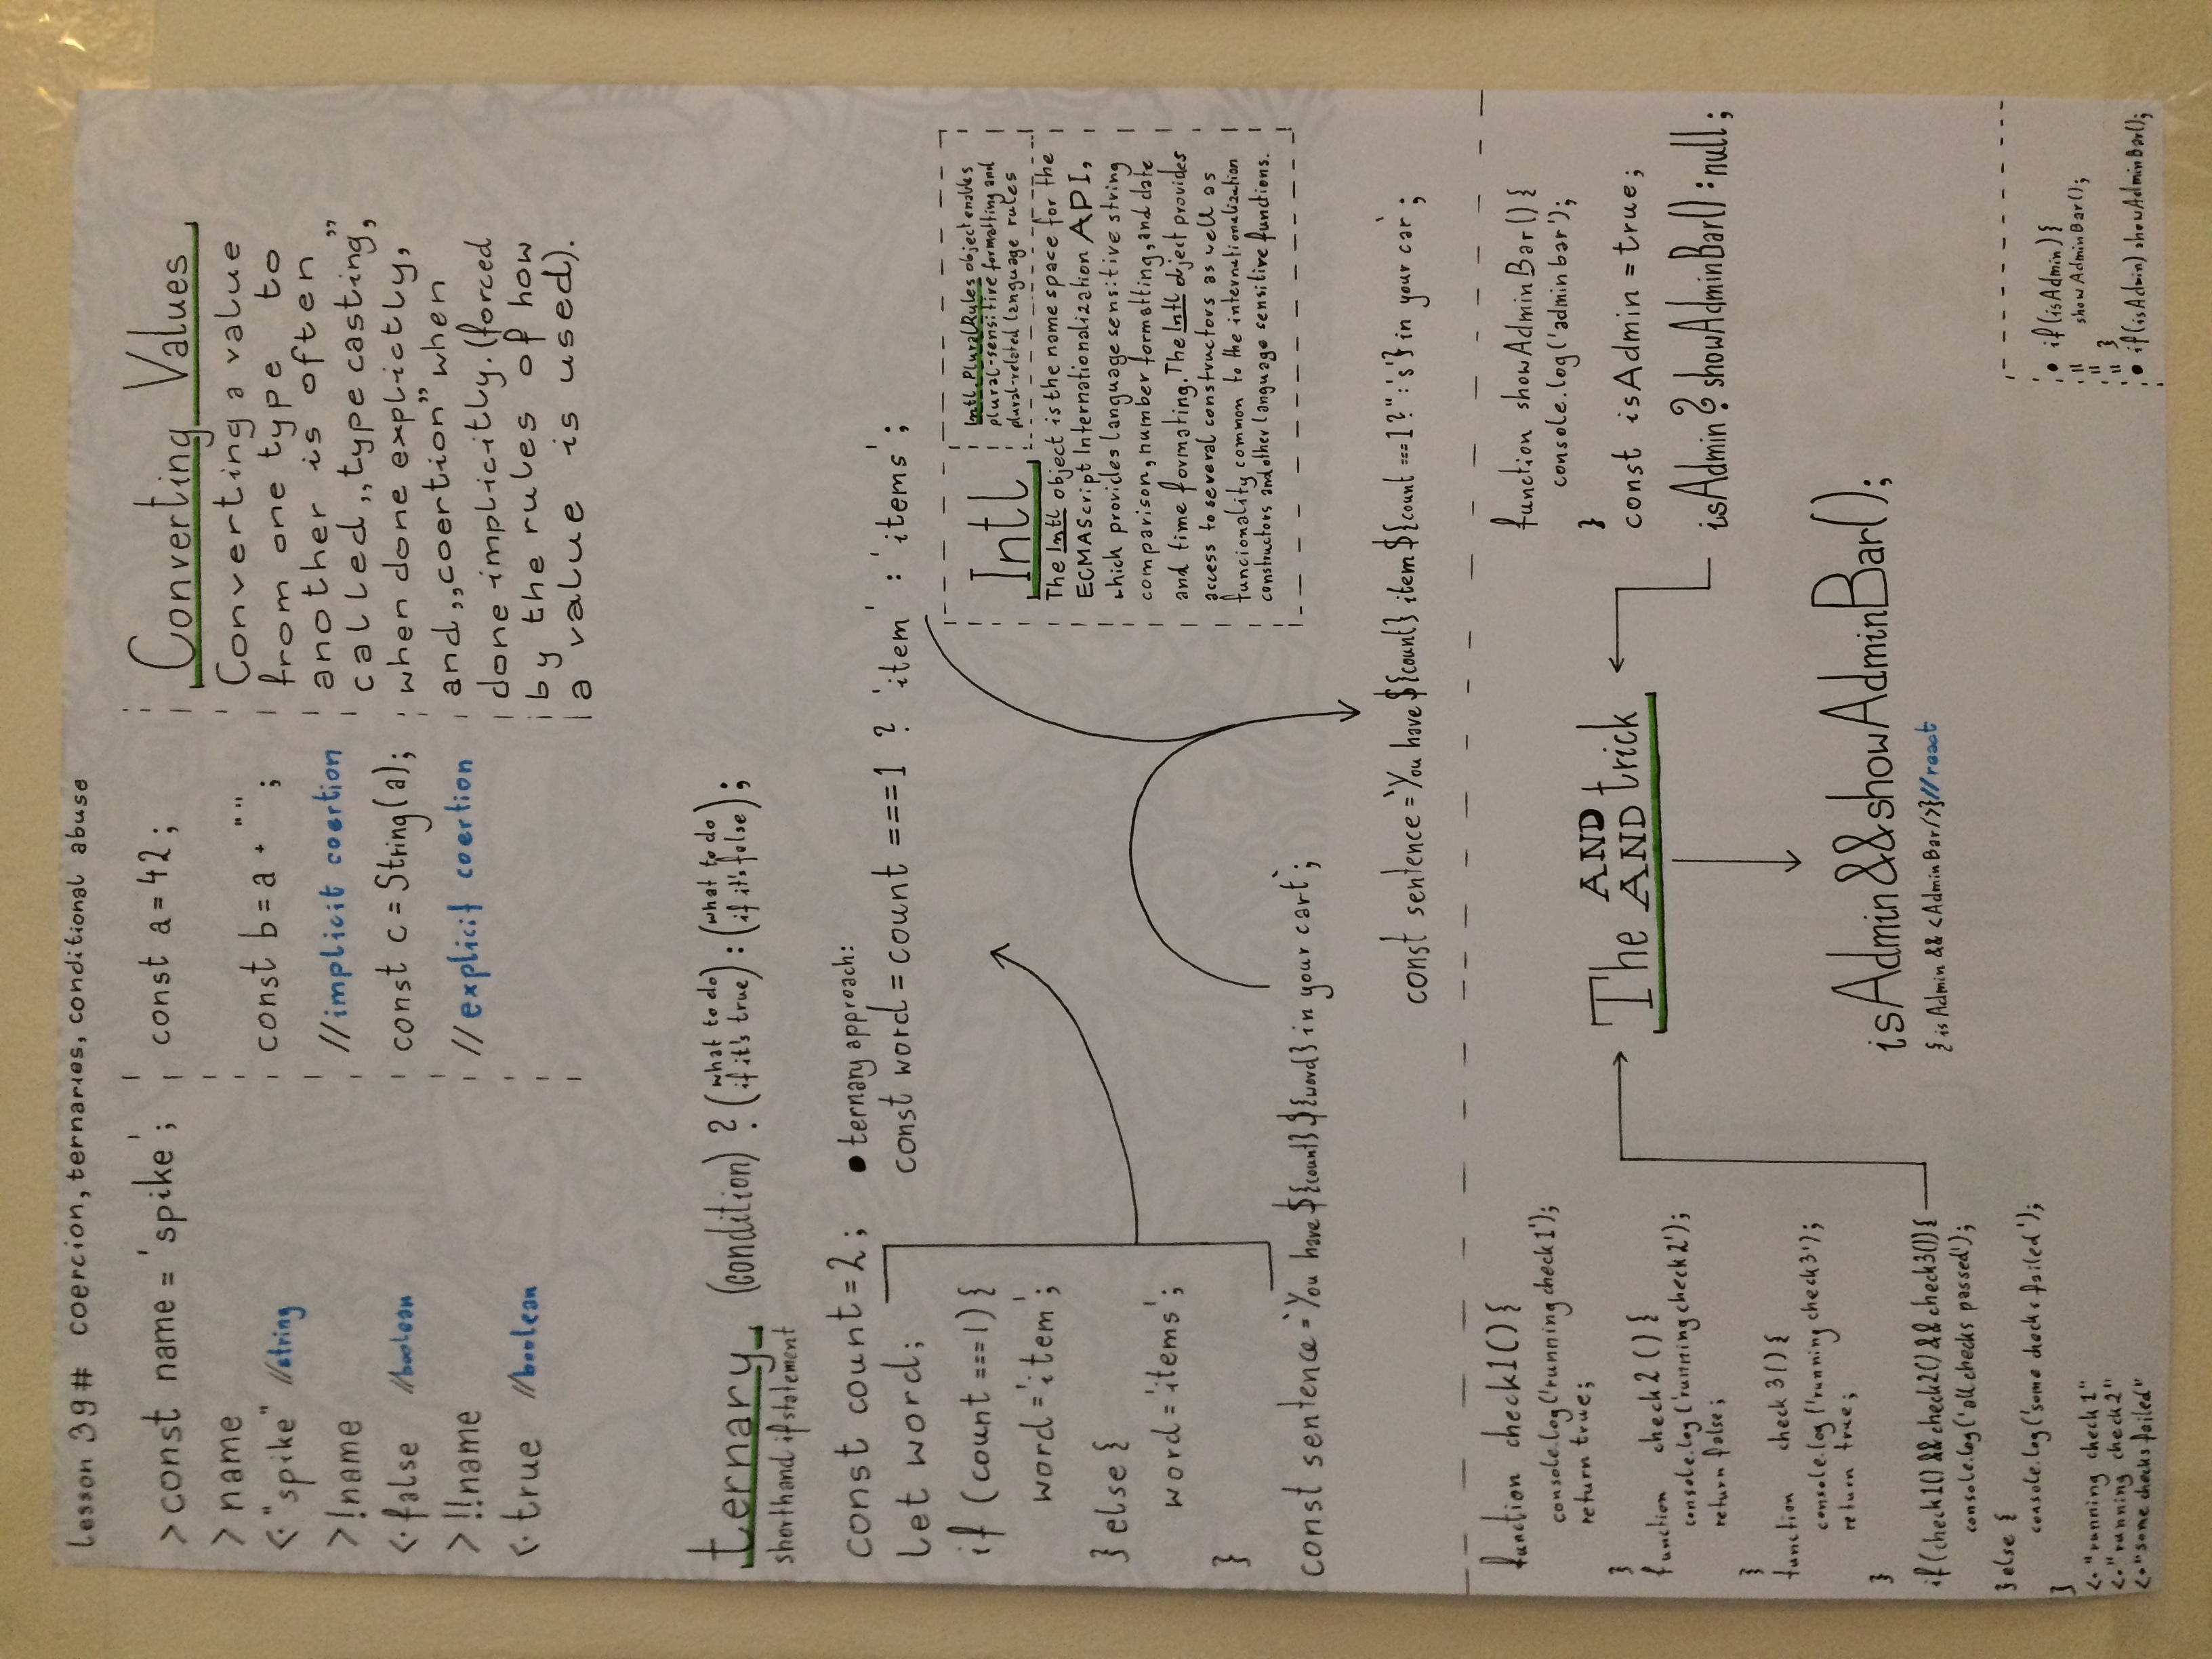 Lesson 39# coercion, ternaries, conditional abuse
>const name = 'spike';
> name
<· "spike" //string
>!name
<· false //boolean
>!!name
<· true //boolean
const a = 42;
const b = a + "";
//implicit coertion
const c = String(a);
//explicit coertion
Converting Values
Converting a value
from one type to
another is often
called „type casting”,
when done explictly,
and „coertion” when
done implicitly. (forced
by the rules of how
a value is used).
ternary (condition) ? (what to do if it's true) : (what to do if it's false);
shorthand if statement
const count = 2;
let word;
if (count === 1) {
word = 'item';
} else {
word = 'items';
}
const sentence = `You have ${count} ${word} in your cart`;
● ternary approach:
const word = count === 1 ? 'item' : 'items';
Intl
Intl.PluralRules object enables
plural-sensitive formatting and
plural-related language rules
The Intl object is the name space for the
ECMAScript Internationalization API,
which provides language sensitive string
comparison, number formatting, and date
and time formating. The Intl object provides
access to several constructors as well as
funcionality common to the internationalization
constructors and other language sensitive functions.
const sentence = `You have ${count} item${count === 1 ? '' : 's'} in your car`;
function check1() {
console.log('running check 1');
return true;
}
function check2 () {
console.log('running check 2');
return false;
}
function check3() {
console.log('running check3');
return true;
}
if (check1() && check2() && check3()) {
console.log('all checks passed');
} else {
console.log('some checks failed');
}
<· "running check 1"
<· "running check 2"
<· "some checks failed"
The AND AND trick
isAdmin && showAdminBar();
{isAdmin && <AdminBar/>} //react
function showAdminBar() {
console.log('admin bar');
}
const isAdmin = true;
isAdmin ? showAdminBar() : null;
● if (isAdmin) {
showAdminBar();
}
● if (isAdmin) showAdminBar();